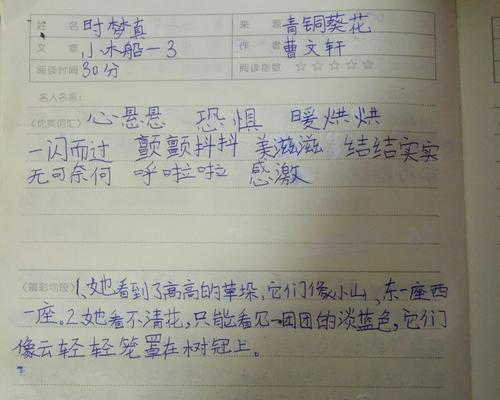 姓 名 时梦真 来 源 青铜葵花
文 章 小冰船-3 作 者 曹文轩
阅读时间 30分 阅读指数 ☆☆☆☆☆
名人名言:
〈优美词汇〉 心悬悬 恐惧 暖烘烘
一闪而过 颤颤抖抖 美滋滋 结结实实
无可奈何 呼啦啦 感激
〈精彩句段〉 1、她看到了高高的草垛,它们像小山,东一座西
一座。2、她看不清花,只能看见一团团的淡蓝色,它们
像云轻轻笼罩在树冠上。